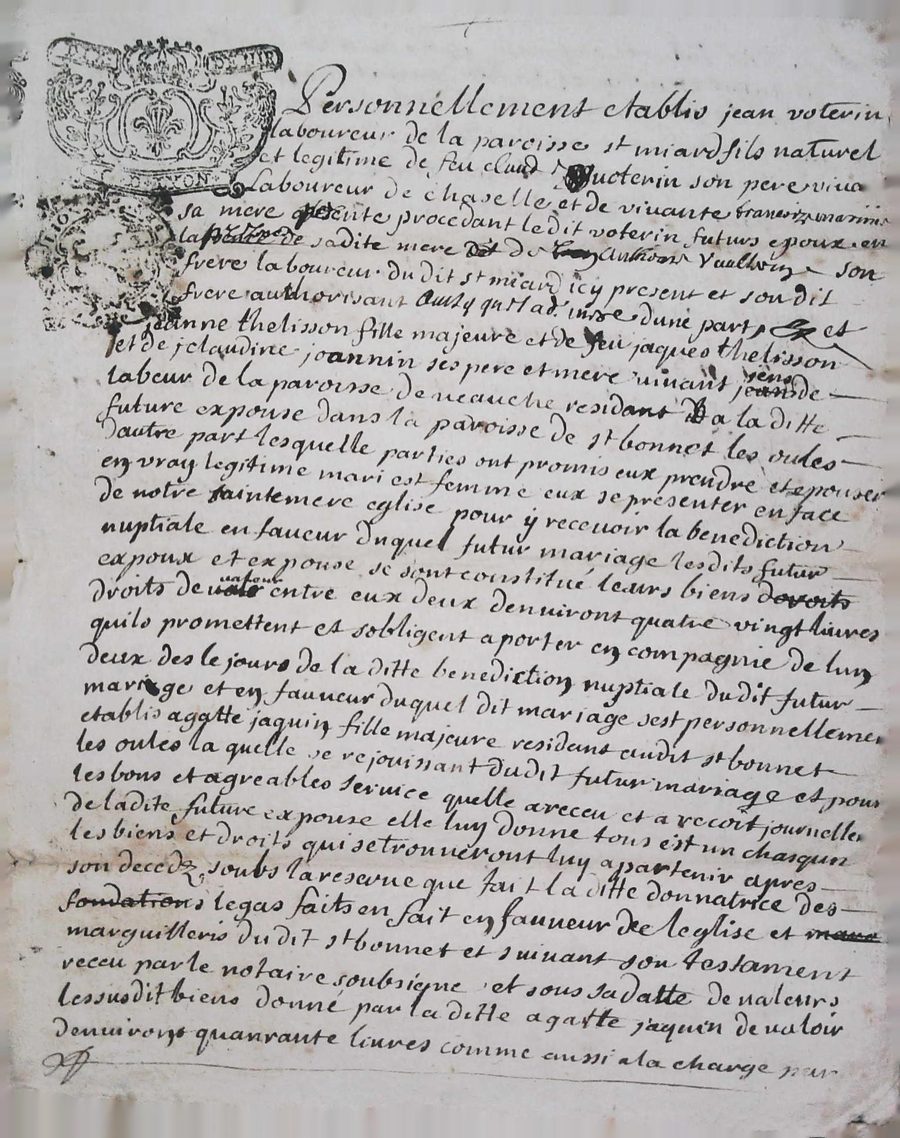 Personnellement etablis jean voterin
laboureur de la paroisse st miard fils naturel
et legitime de feu claud vuoterin son pere viva
Laboureur de chaselle et de vivante
sa mere presente procedant ledit voterin futurs epoux en
de sadite mere et de Anthoine son
frere laboureur du dit st miard icy present et son dit
frere authorisant dune part et
jeanne thelisson fille majeure et de feu jaques thelisson
et de claudine joannin ses pere et mere vivant
labeur de la paroisse de veauche residant a la ditte
future expouse dans la paroisse de st bonnet les oules
dautre part lesquelle parties ont promis eux prendre et epouser
en vray legitime mari est femme eux se presenter en face
de notre sainte mere eglise pour y recevoir la benediction
nuptiale en faveur duquel futur mariage lesdits futur
expoux et expouse se sont constitué leurs biens
droits de valeur entre eux deux denviront quatre vingt livres
quils promettent et sobligent aporter en compagnie de lun
deux des le jours de la ditte benediction nuptiale du dit futur
mariage et en fauveur duquel dit mariage sest personnelleme
etablis agatte jaquin fille majeure residant audit st bonnet
les oules la quelle se rejouissant dudit futur mariage et pour
les bons et agreables service quelle a receu et a recoit journelle
de ladite future expouse elle luy donne tous est un chasqun
les biens et droits qui se trouveront luy apartenir apres
son decedz, soubs la reserve que fait la ditte donnatrice des
fondations legas faits en fait en fauveur de leglise et
marguilleris du dit st bonnet et suivant son testament
receu par le notaire soubsigné et sous sa datte de valeurs
lessusdit biens donné par la ditte agatte jaquin de valoir
denviront quanrante livres comme aussi a la charge par